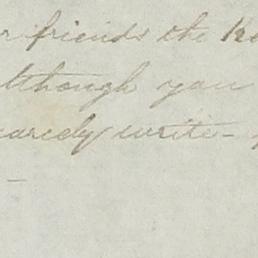 r friends the
although you
scarcely write -